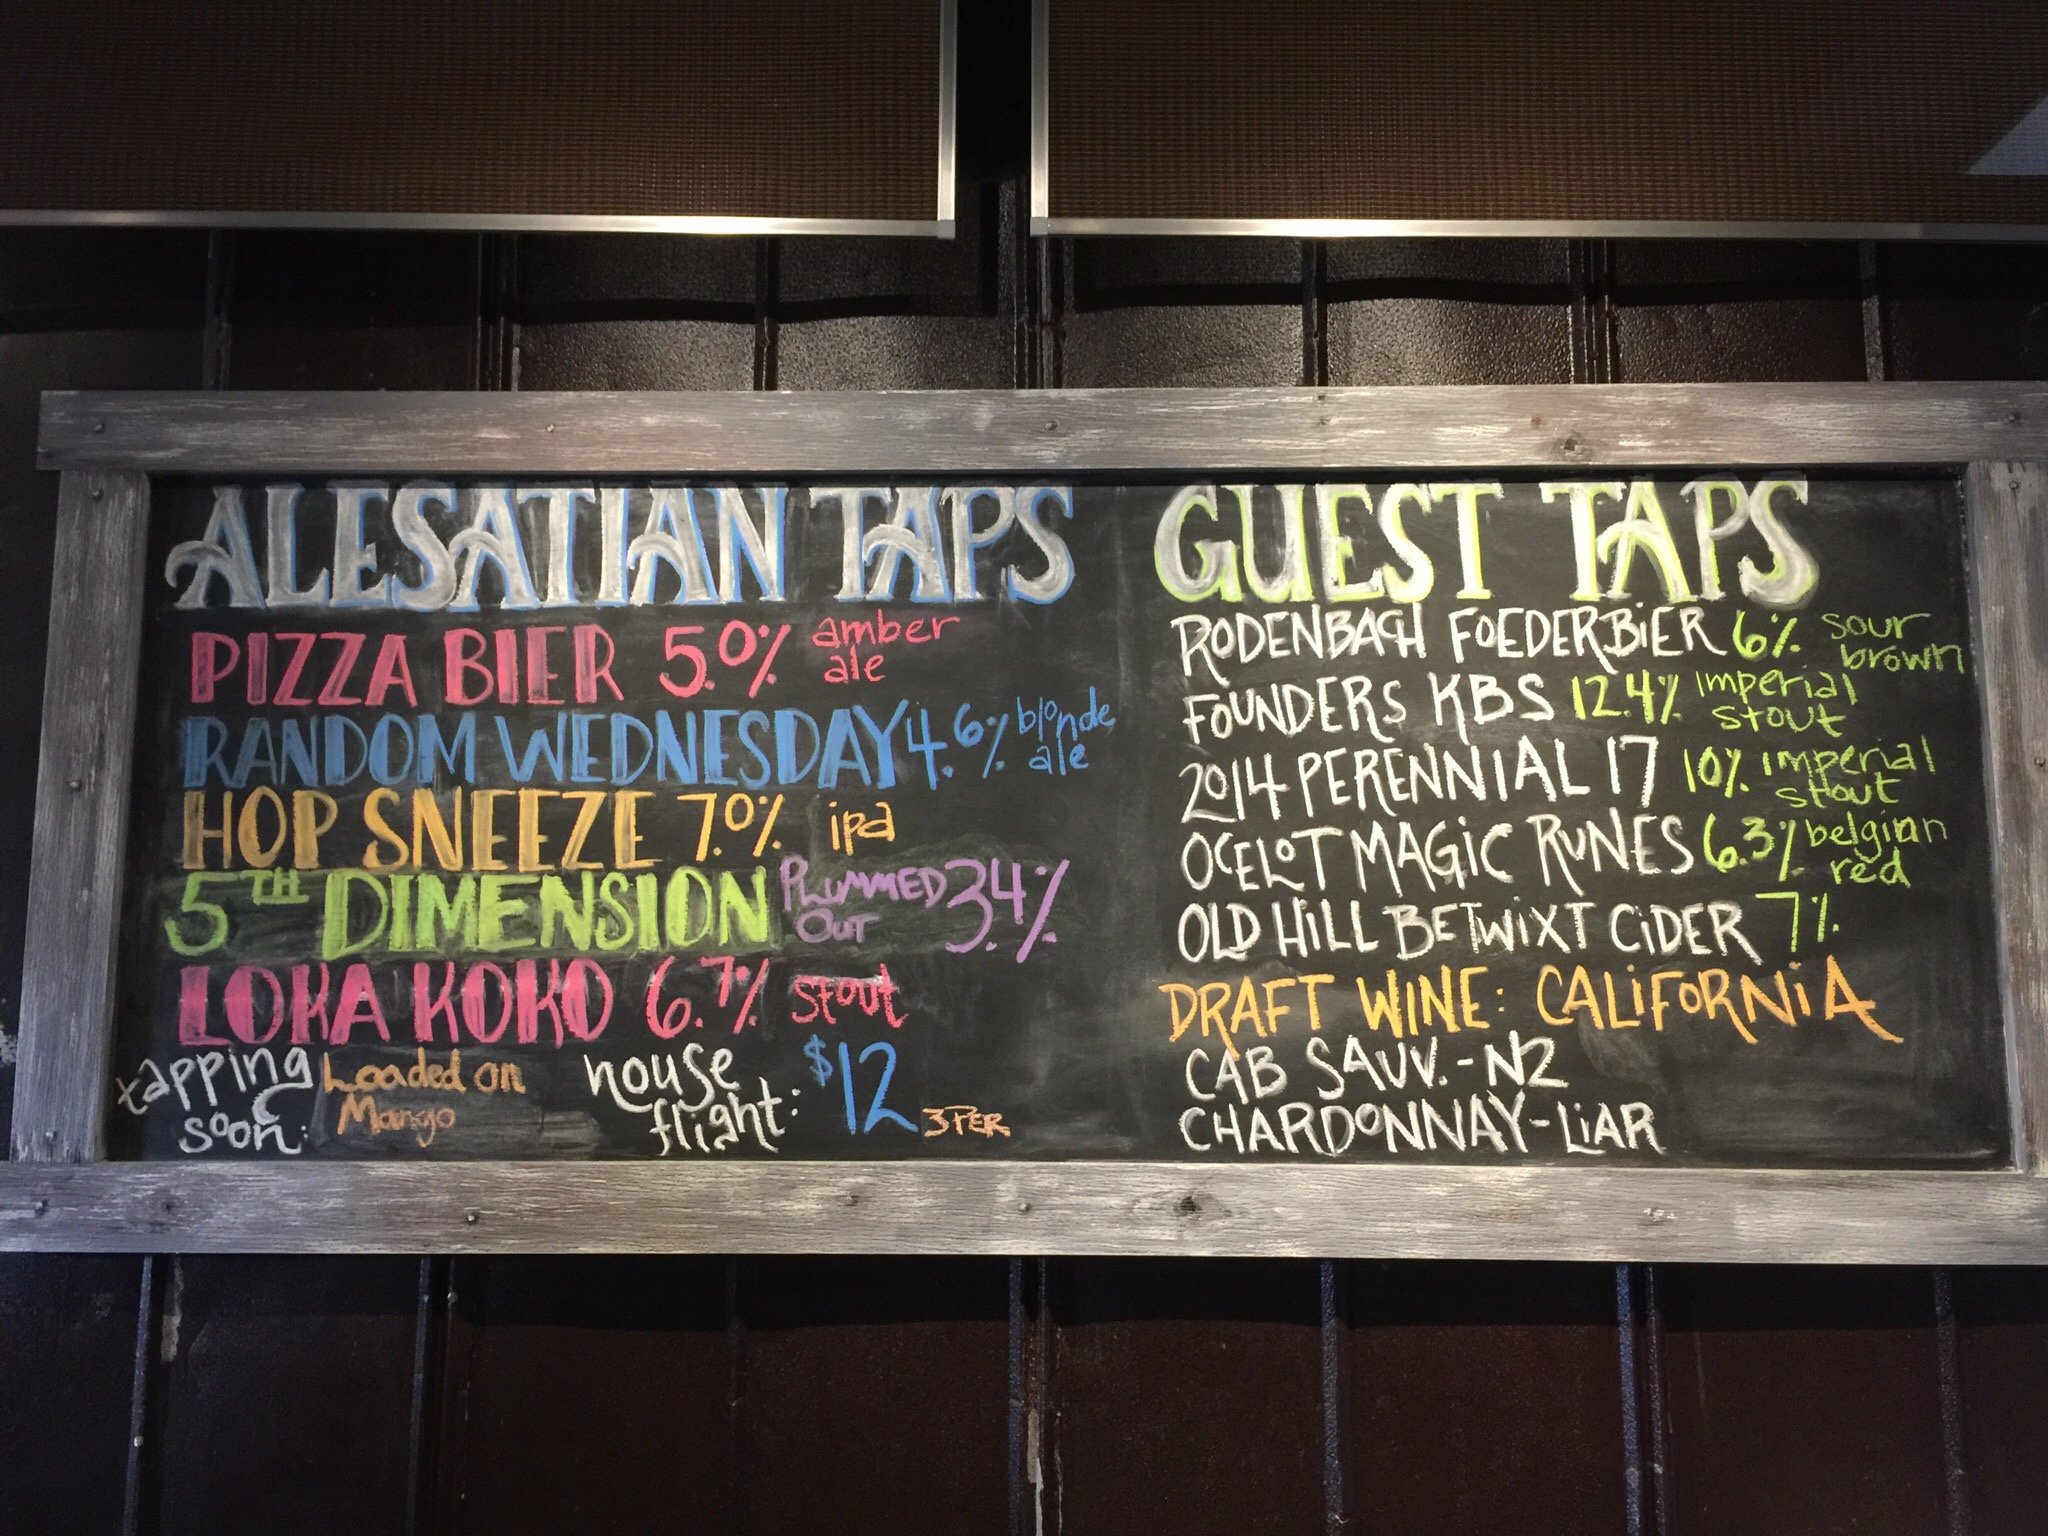 ALESATIAN TAPS
PIZZA BIER 5.0% amber ale
RANDOM WEDNESDAY 4.6% blonde ale
HOP SNEEZE 7.0% ipa
5TH DIMENSION PLUMMED OUT 3.4%
LOKA KOKO 6.7% stout
tapping soon: Loaded on Mango
house flight: $12 3 PER
GUEST TAPS
RODENBACH FOEDERBIER 6% sour brown
FOUNDERS KBS 12.4% imperial stout
2014 PERENNIAL 17 10% imperial stout
OCELOT MAGIC RUNES 6.3% belgian red
OLD HILL BETWIXT CIDER 7%
DRAFT WINE: CALIFORNIA
CAB SAUV. - NZ
CHARDONNAY - LIAR